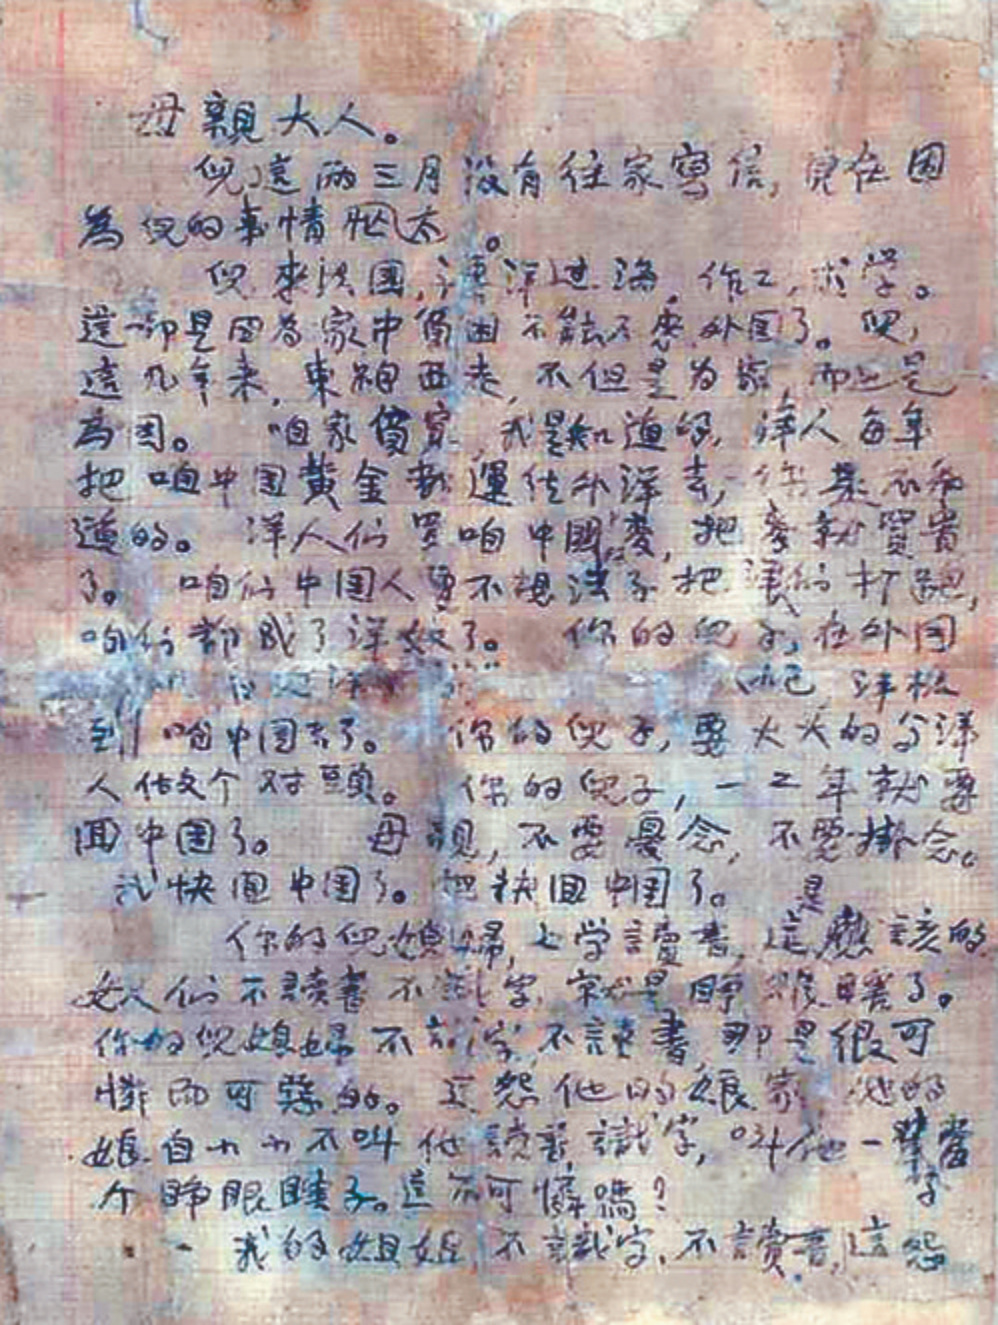 母親大人。
兒這两三月没有往家寫信,實在因
為兒的事情忙太。
兒來法国,漂洋过海,作工,求学。
這一却是因為家中貧困不能不来外国了。兒,
這几年来,東奔西走,不但是为家,而也是
為国。 咱家貧窮,我是知道的,洋人每年
把咱中国黄金都運往外洋去,你是不知
道的。 洋人们買咱中國麥,把麥就買貴
了。 咱们中国人要不想法子把洋人们打跑,
咱们都成了洋奴了。 你的兒子,在外国
洋
到咱中国去了。 你的兒子,要大大的与洋
人做个对頭。 你的兒子,一二年就要
回中国了。 母親,不要憂念,不要掛念。
我快回中国了。 快回中国了。
你的兒媳婦,上学讀書,這是應該的
女人们不讀書不識字,就是睁眼瞎了。
你的兒媳婦不識字,不讀書,那是很可
憐而可 的。 怨他的娘家 他的
娘自小小不叫他讀書識字,叫他一輩子當
个睁眼瞎子。這不可憐嗎?
我的姐姐,不識字,不讀書,這怨